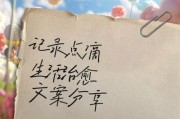 记录点滴
生活治愈
文案分享